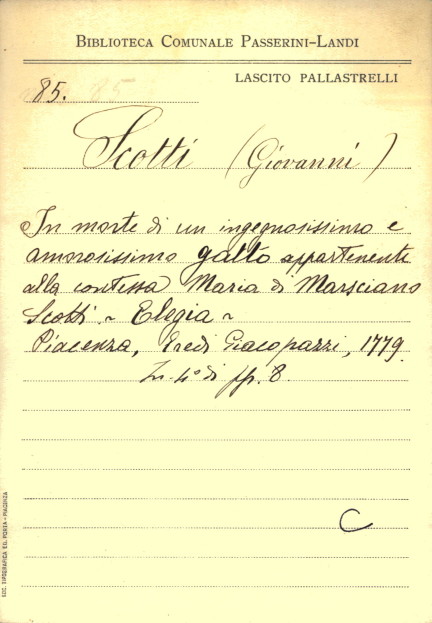 BIBLIOTECA COMUNALE PASSERINI-LANDI
LASCITO PALLASTRELLI
85.
Scotti (Giovanni)
In morte di un ingegnosissimo e
amorosissimo gatto appartenente
alla contessa Maria di Marsciano
Scotti - Elegia -
Piacenza, Eredi Giacopazzi, 1779.
In-4° di pp. 8.
C
SOC. TIPOGRAFICA ED. PORTA - PIACENZA